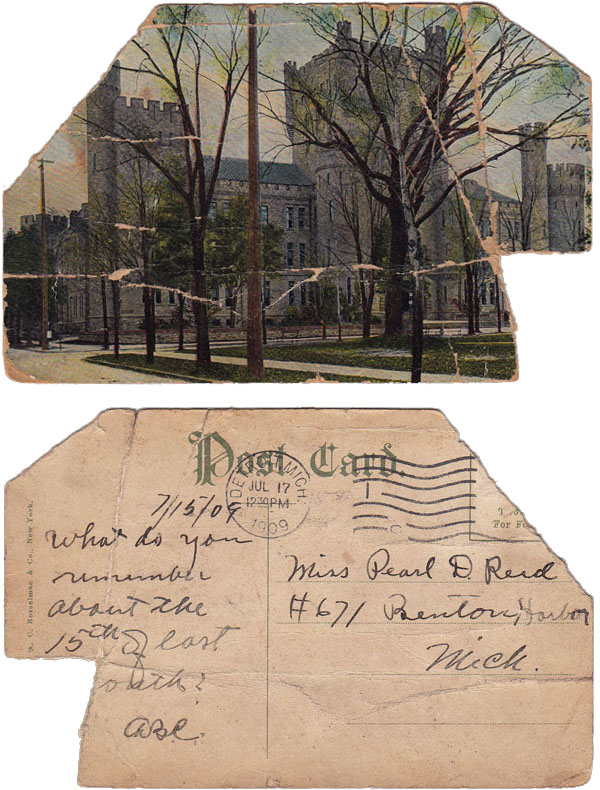 Post Card.
DETROIT, MICH.
JUL 17
12 30 PM
1909
7/15/09
What do you
remember
about the
15th of last
outh?
ase.
Miss Pearl D. Reed
#671 Benton Harbor
Mich.
T
For Fo
A. C. Bosselman & Co., New York.